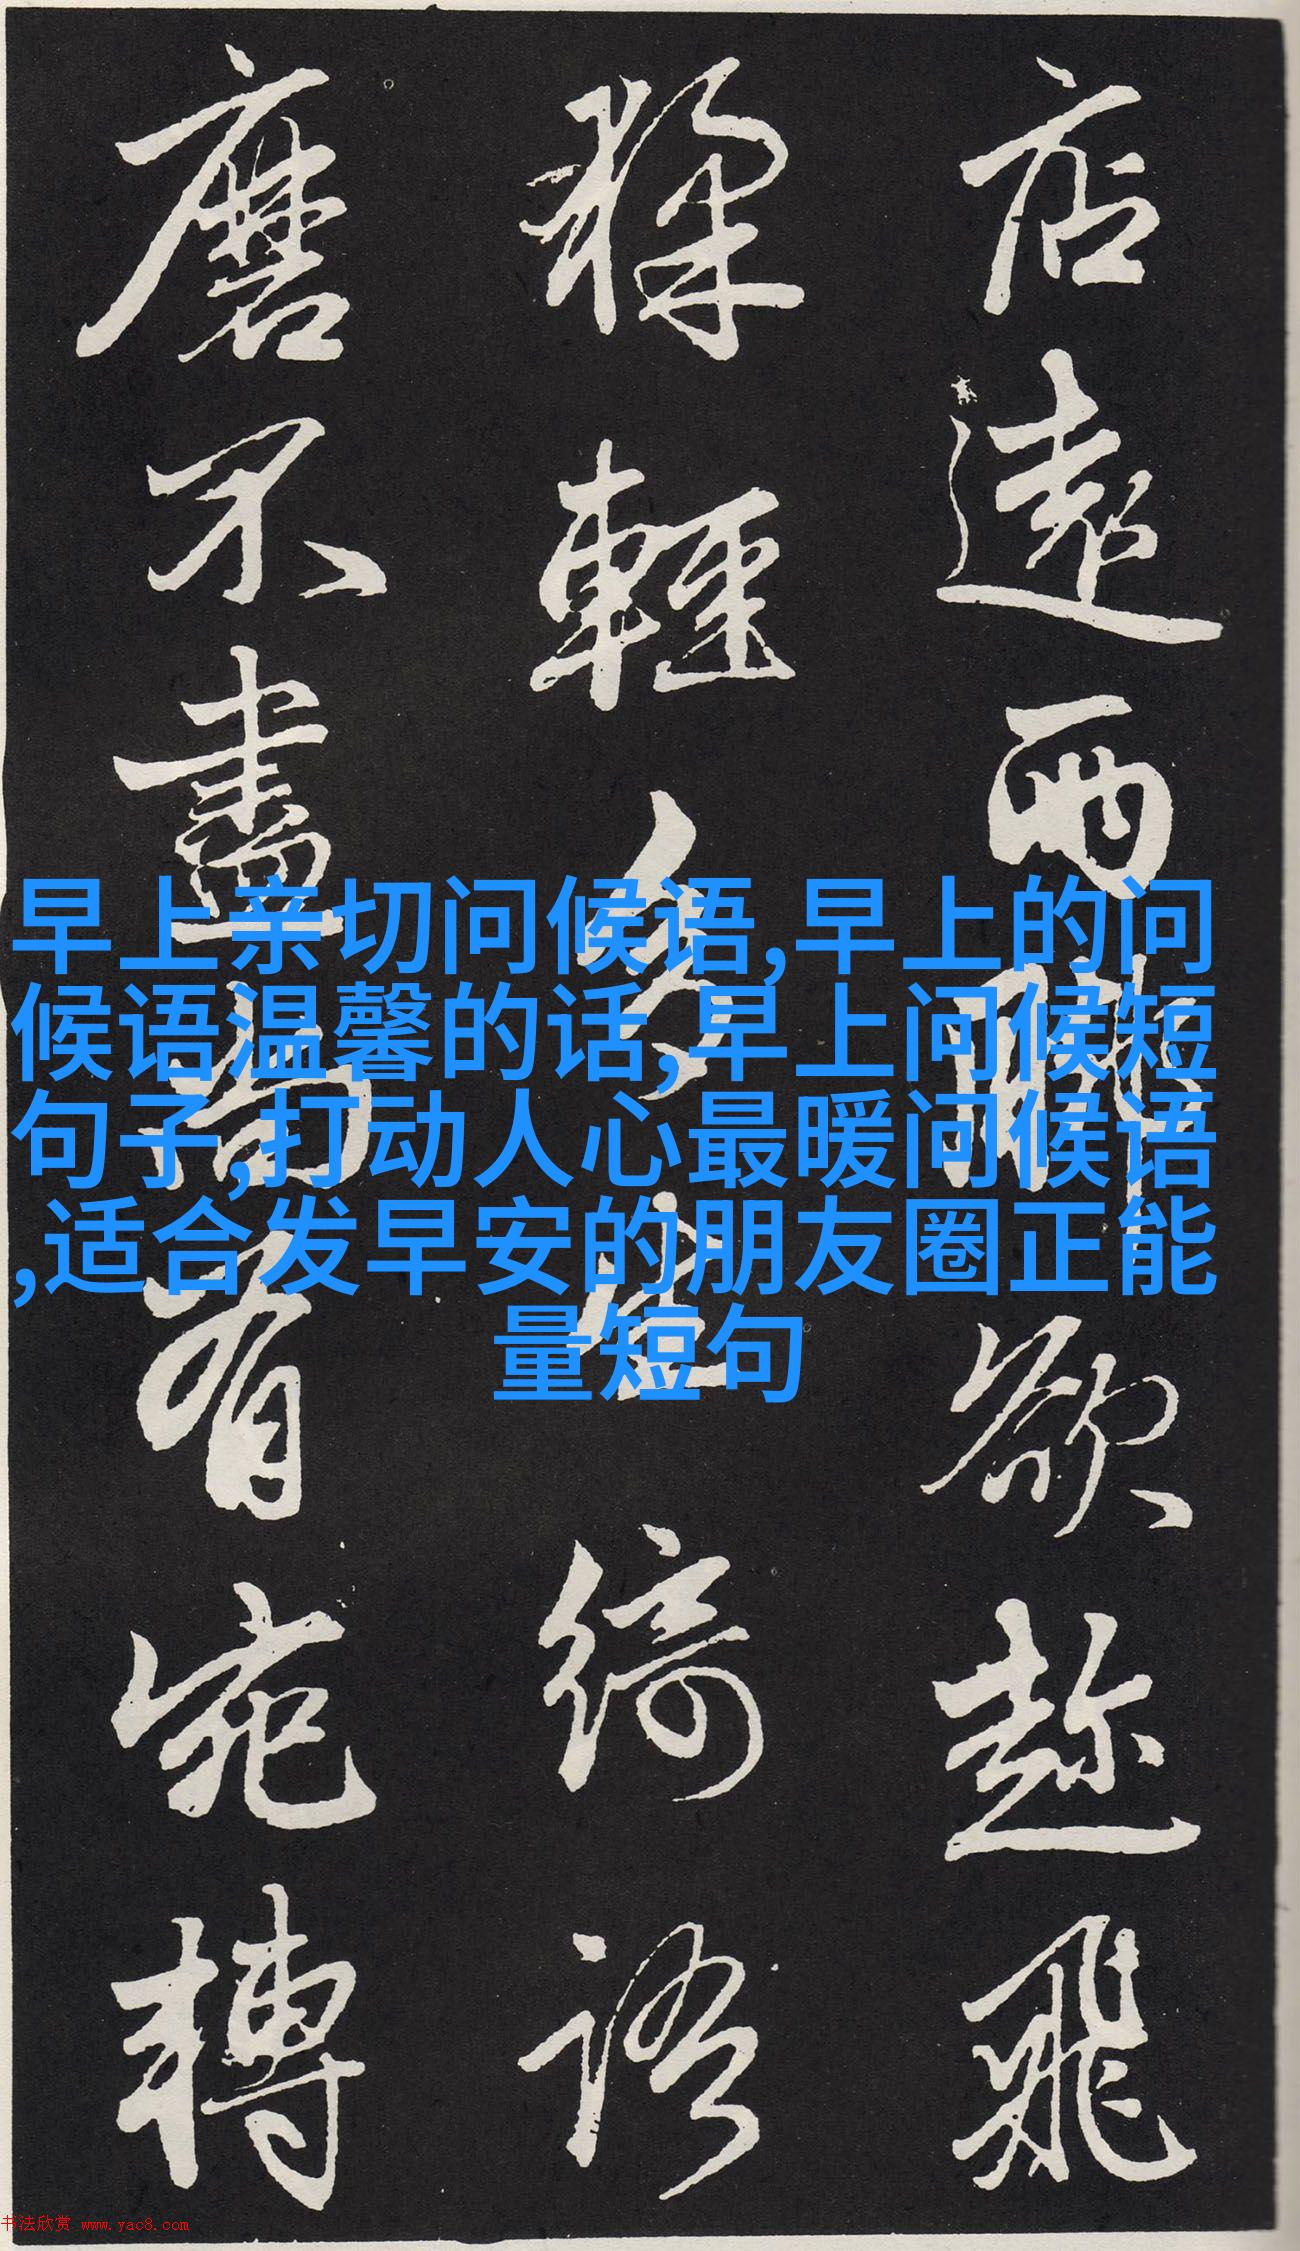 店遠兩脚欲趁飛
猱輕多生綺語
磨不盡尚有宛轉
早上亲切问候语,早上的问
候语温馨的话,早上问候短
句子,打动人心最暖问候语
,适合发早安的朋友圈正能
量短句
书法欣赏 www.yac8.com